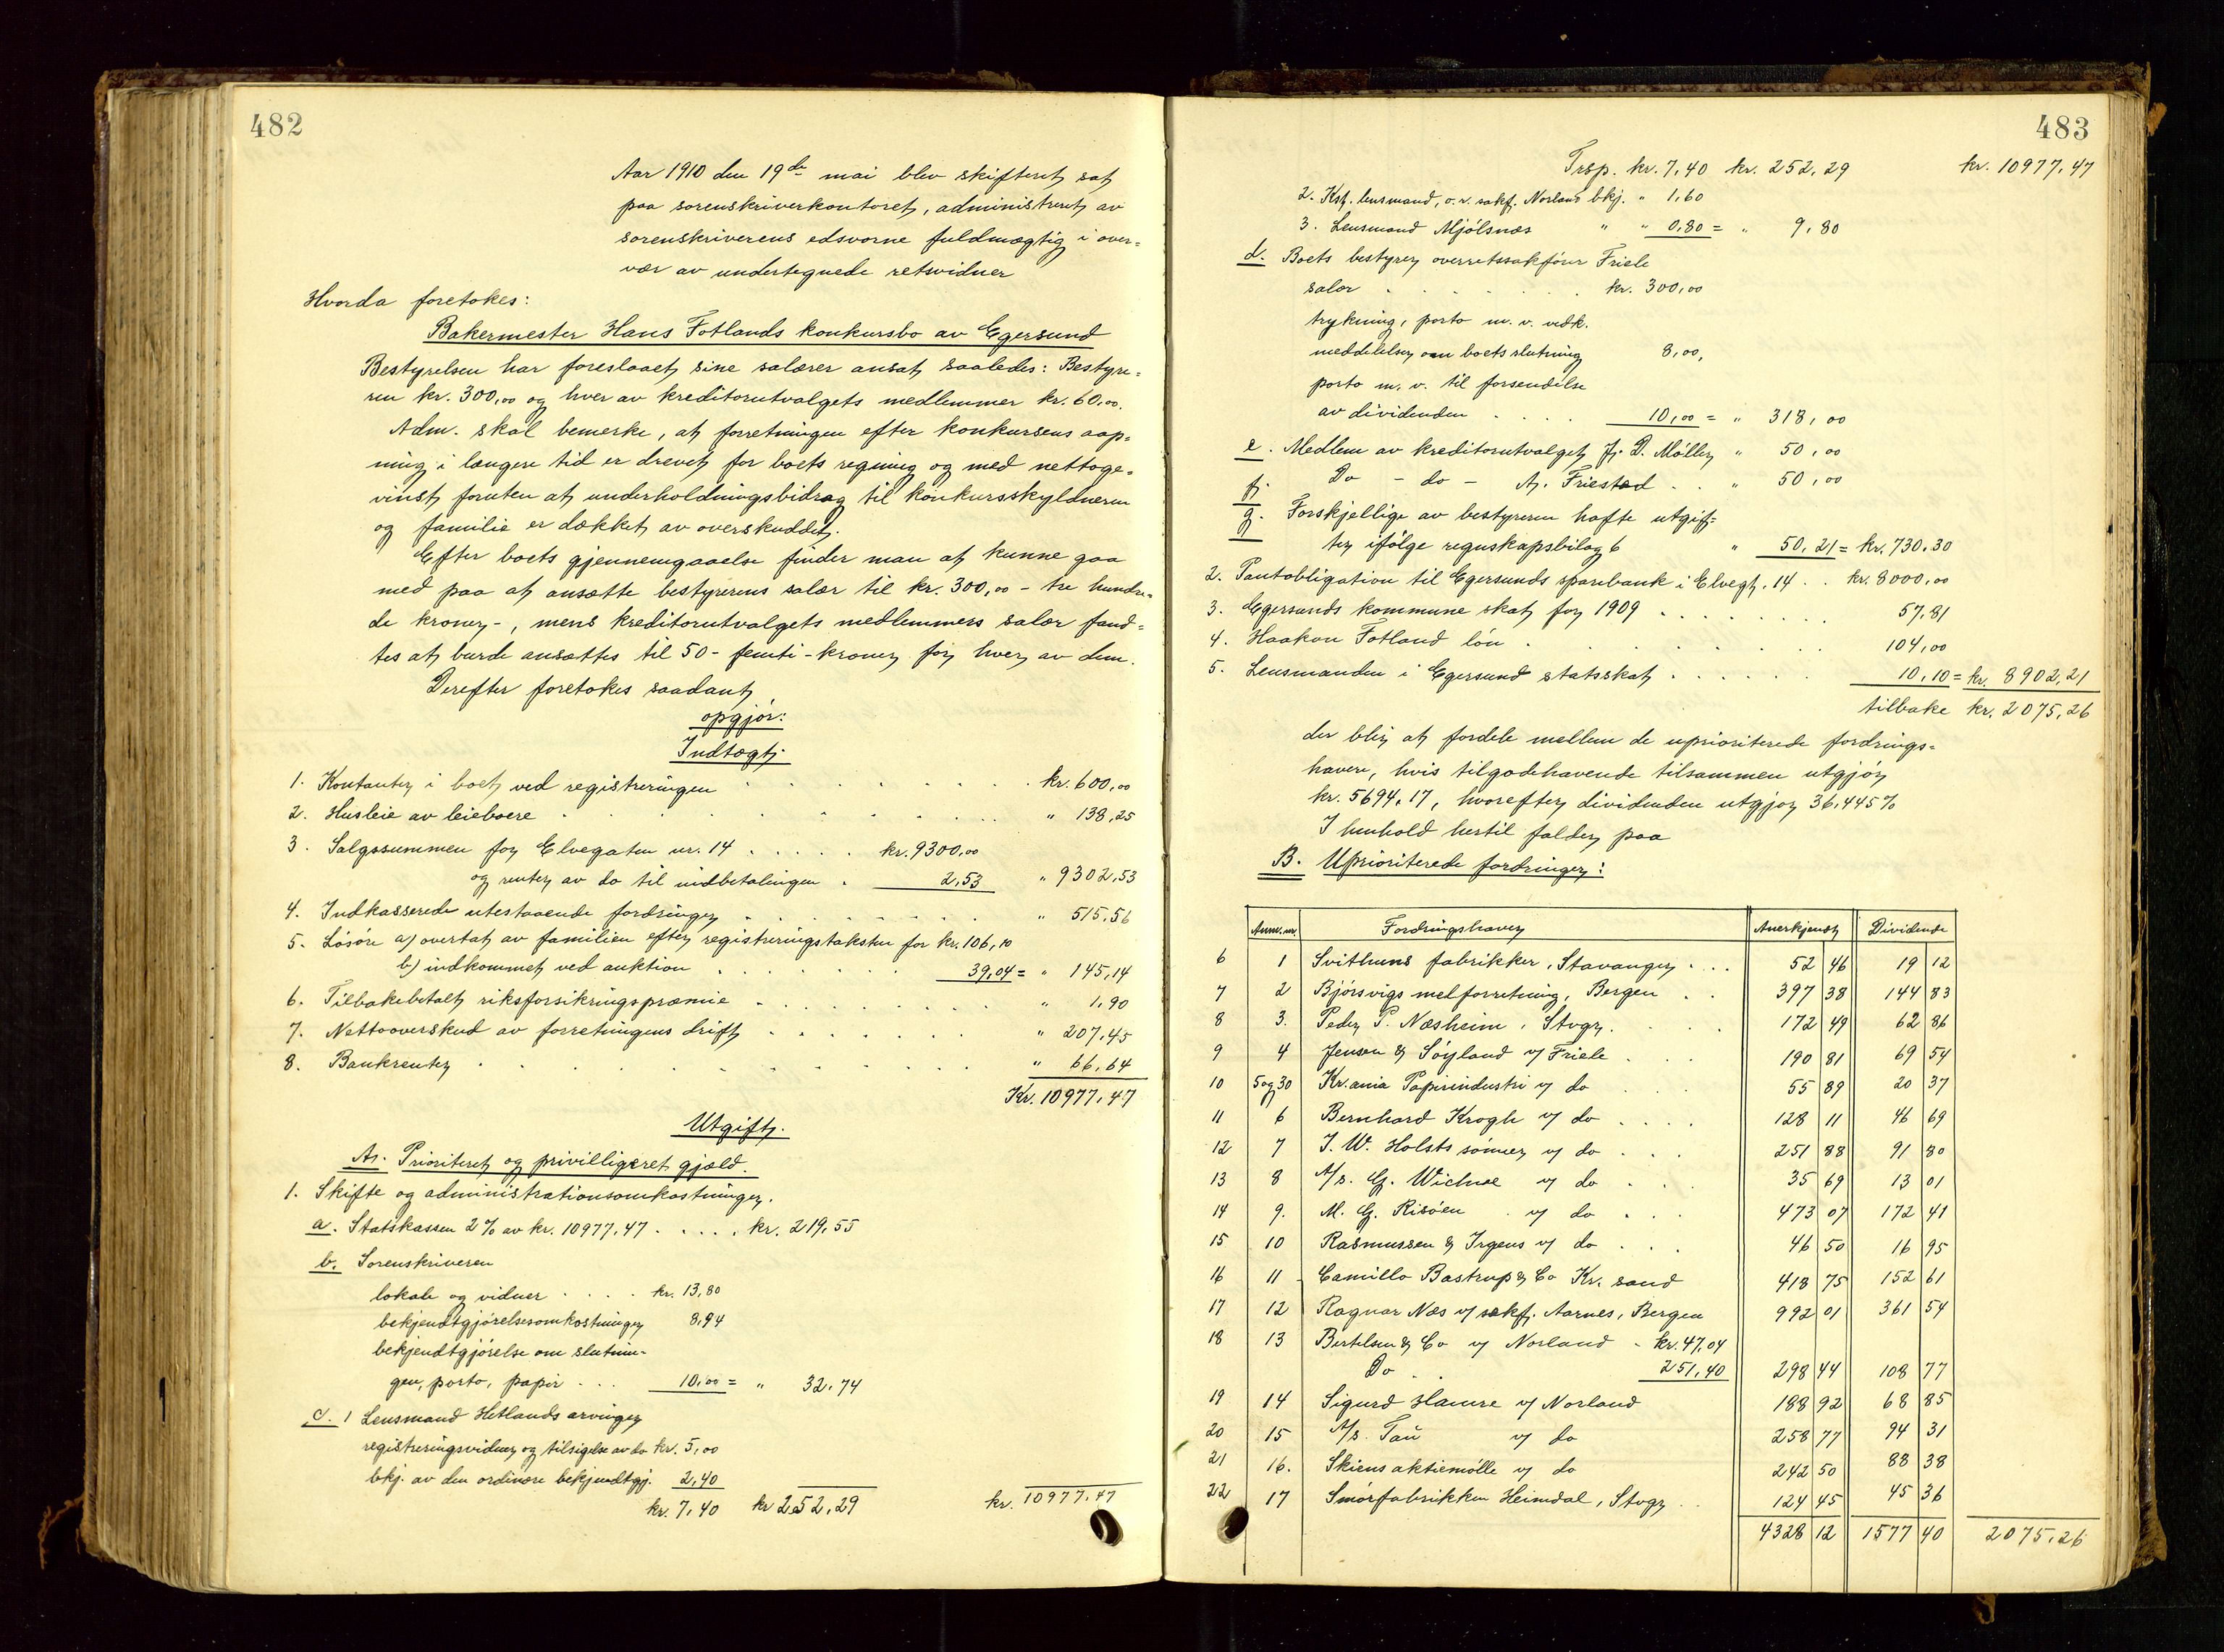 482
Aar 1910 den 19de mai blev skifteret sat
paa sorenskriverkontoret, administreret av
sorenskriverens edsvorne fuldmægtig i over=
vær av undertegnede retsvidner
Hvorda foretokes:
Bakermester Hans Fotlands konkursbo av Egersund
Bestyrelsen har foreslaaet sine salærer ansat saaledes: Bestyre=
ren kr. 300,00 og hver av kreditorutvalgets medlemmer kr. 60,00.
Adm. skal bemerke, at forretningen efter konkursens aap=
ning i længere tid er drevet for boets regning og med nettoge=
vinst foruten at underholdningsbidrag til konkursskyldneren
og familie er dækket av overskuddet.
Efter boets gjennemgaaelse finder man at kunne gaa
med paa at ansætte bestyrerens salær til kr. 300,00 - tre hundre=
de kroner -, mens kreditorutvalgets medlemmers salær fand=
tes at burde ansættes til 50 - femti - kroner for hver av dem.
Derefter foretokes saadant
opgjør:
Indtægt.
1. Kontanter i boet ved registreringen . . . kr. 600,00
2. Husleie av leieboere . . . " 138,25
3. Salgssummen for Elvegaten nr. 14 . . . kr. 9300,00
og renter av do til indbetalingen . 2,53 " 9302,53
4. Indkasserede utestaaende fordringer . . . " 515,56
5. Løsøre a) overtat av familien efter registreringstaksten for kr. 106,10
b) indkommet ved auktion . . . 39,04 = " 145,14
6. Tilbakebetalt riksforsikringspræmie . . . " 1,90
7. Nettooverskud av forretningens drift . . . " 207,45
8. Bankrenter . . . " 66,64
Kr. 10977,47
Utgift.
A. Prioritert og privilligeret gjæld.
1. Skifte og administrationsomkostninger.
a. Statskassen 2 % av kr. 10977,47 . . . . . kr. 219,55
b. Sorenskriveren
lokale og vidner . . . . kr. 13,80
bekjendtgjørelsesomkostninger 8,94
bekjendtgjørelse om slutnin-
gen, porto, papir . . . 10,00 = " 32,74
c. 1 Lensmand Hetlands arvinger
registreringsvidner og tilsigelse av do kr. 5,00
bkj. av den ordinære bekjendtgj. 2,40
kr. 7,40 kr 252,29 kr. 10977,47
483
Trsp. kr. 7,40 kr. 252,29 kr. 10977,47
2. Kst. lensmand, o.r. sakf. Norland bkj. " 1,60
3. Lensmand Mjølsnæs " " 0,80 = " 9,80
d. Boets bestyrer overretssakfører Friele
salær . . . kr. 300,00
trykning, porto m. v. vedk.
meddelelser om boets slutning 8,00,
porto m. v. til forsendelse
av dividenden . . . . 10,00 = " 318,00
e. Medlem av kreditorutvalget J. D. Møller " 50,00
f. Do - do - A. Friestad . . " 50,00
g. Forskjellige av bestyreren hafte utgif=
ter ifølge regnskapsbilag 6 " 50,21 = kr. 730,30
2. Pantobligation til Egersunds sparebank i Elvegt. 14 . . kr. 8000,00
3. Egersunds kommune skat for 1909 . . . 57,81
4. Haakon Fotland løn . . . 104,00
5. Lensmanden i Egersund statsskat . . . 10,10 = kr. 8902,21
tilbake kr. 2075,26
der blir at fordele mellem de uprioriterede fordrings=
havere, hvis tilgodehavende tilsammen utgjør
kr. 5694,17, hvorefter dividenden utgjør 36,445 %
I henhold hertil falder paa
B. Uprioriterede fordringer:
Anm. nr. Fordringshaver Anerkjendt Dividende
6 1 Svithuns fabrikker, Stavanger . . . 52 46 19 12
7 2 Bjørsvigs melforretning, Bergen . . 397 38 144 83
8 3. Peder P. Næsheim, Stvgr. . . . 172 49 62 86
9 4 Jensen & Søyland v/ Friele . . . 190 81 69 54
10 5 og 30 Kr.ania Papirindustri v/ do . . . 55 89 20 37
11 6 Bernhard Krogh v/ do . . . . 128 11 46 69
12 7 I. W. Holsts sønner v/ do . . . 251 88 91 80
13 8 A/s. G. Wichnæ v/ do . . . 35 69 13 01
14 9. M. G. Risøen v/ do . . . 473 07 172 41
15 10 Rasmussen & Irgens v/ do . . . 46 50 16 95
16 11 Camillo Bastrup & Co Kr. sand 418 75 152 61
17 12 Ragnar Næs v/ sakf. Aarnes, Bergen 992 01 361 54
18 13 Bertelsen & Co v/ Norland - kr. 47,04
Do . . 251,40 298 44 108 77
19 14 Sigurd Hamre v/ Norland 188 92 68 85
20 15 A/s. Tau v/ do 258 77 94 31
21 16. Skiens aktiemølle v/ do 242 50 88 38
22 17 Smørfabrikken Heimdal, Stvgr . . 124 45 45 36
4328 12 1577 40 2075,26